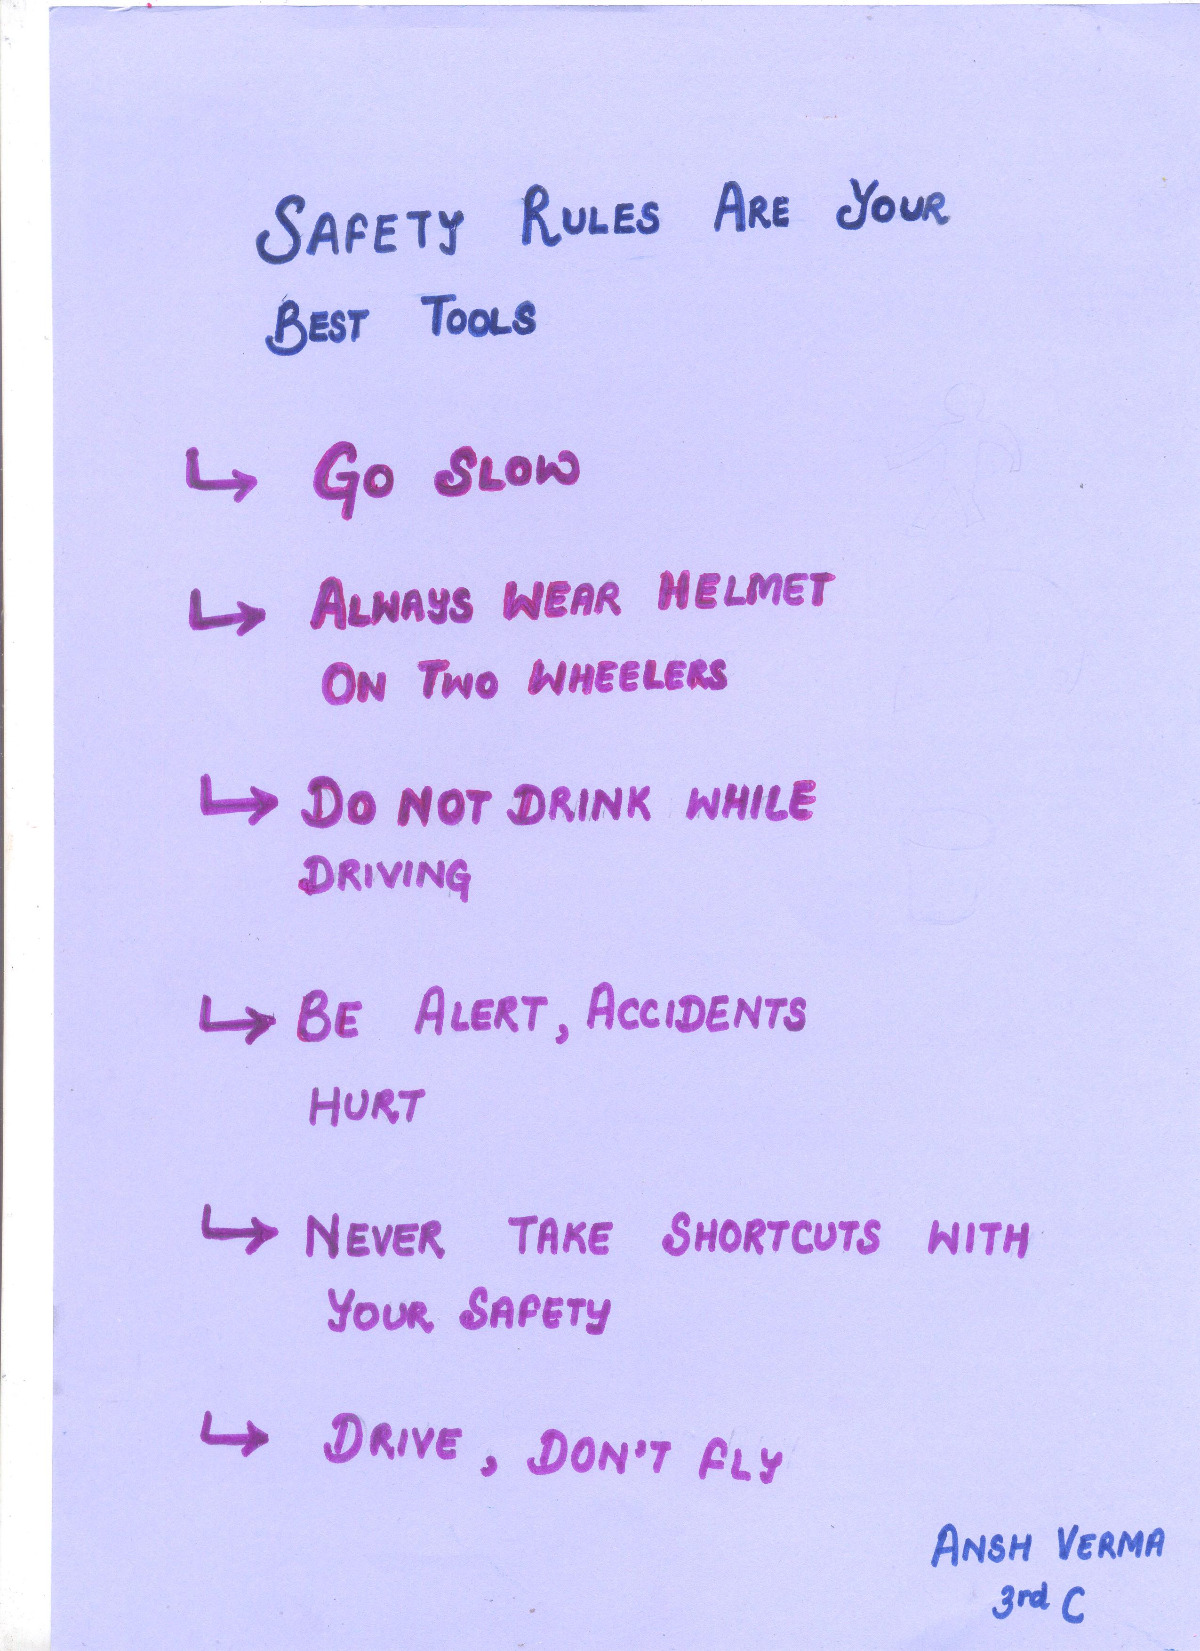 Safety Rules Are Your
Best Tools
↳ Go Slow
↳ Always Wear Helmet
On Two Wheelers
↳ Do Not Drink While
Driving
↳ Be Alert, Accidents
Hurt
↳ Never Take Shortcuts With
Your Safety
↳ Drive, Don't Fly
Ansh Verma
3rd C